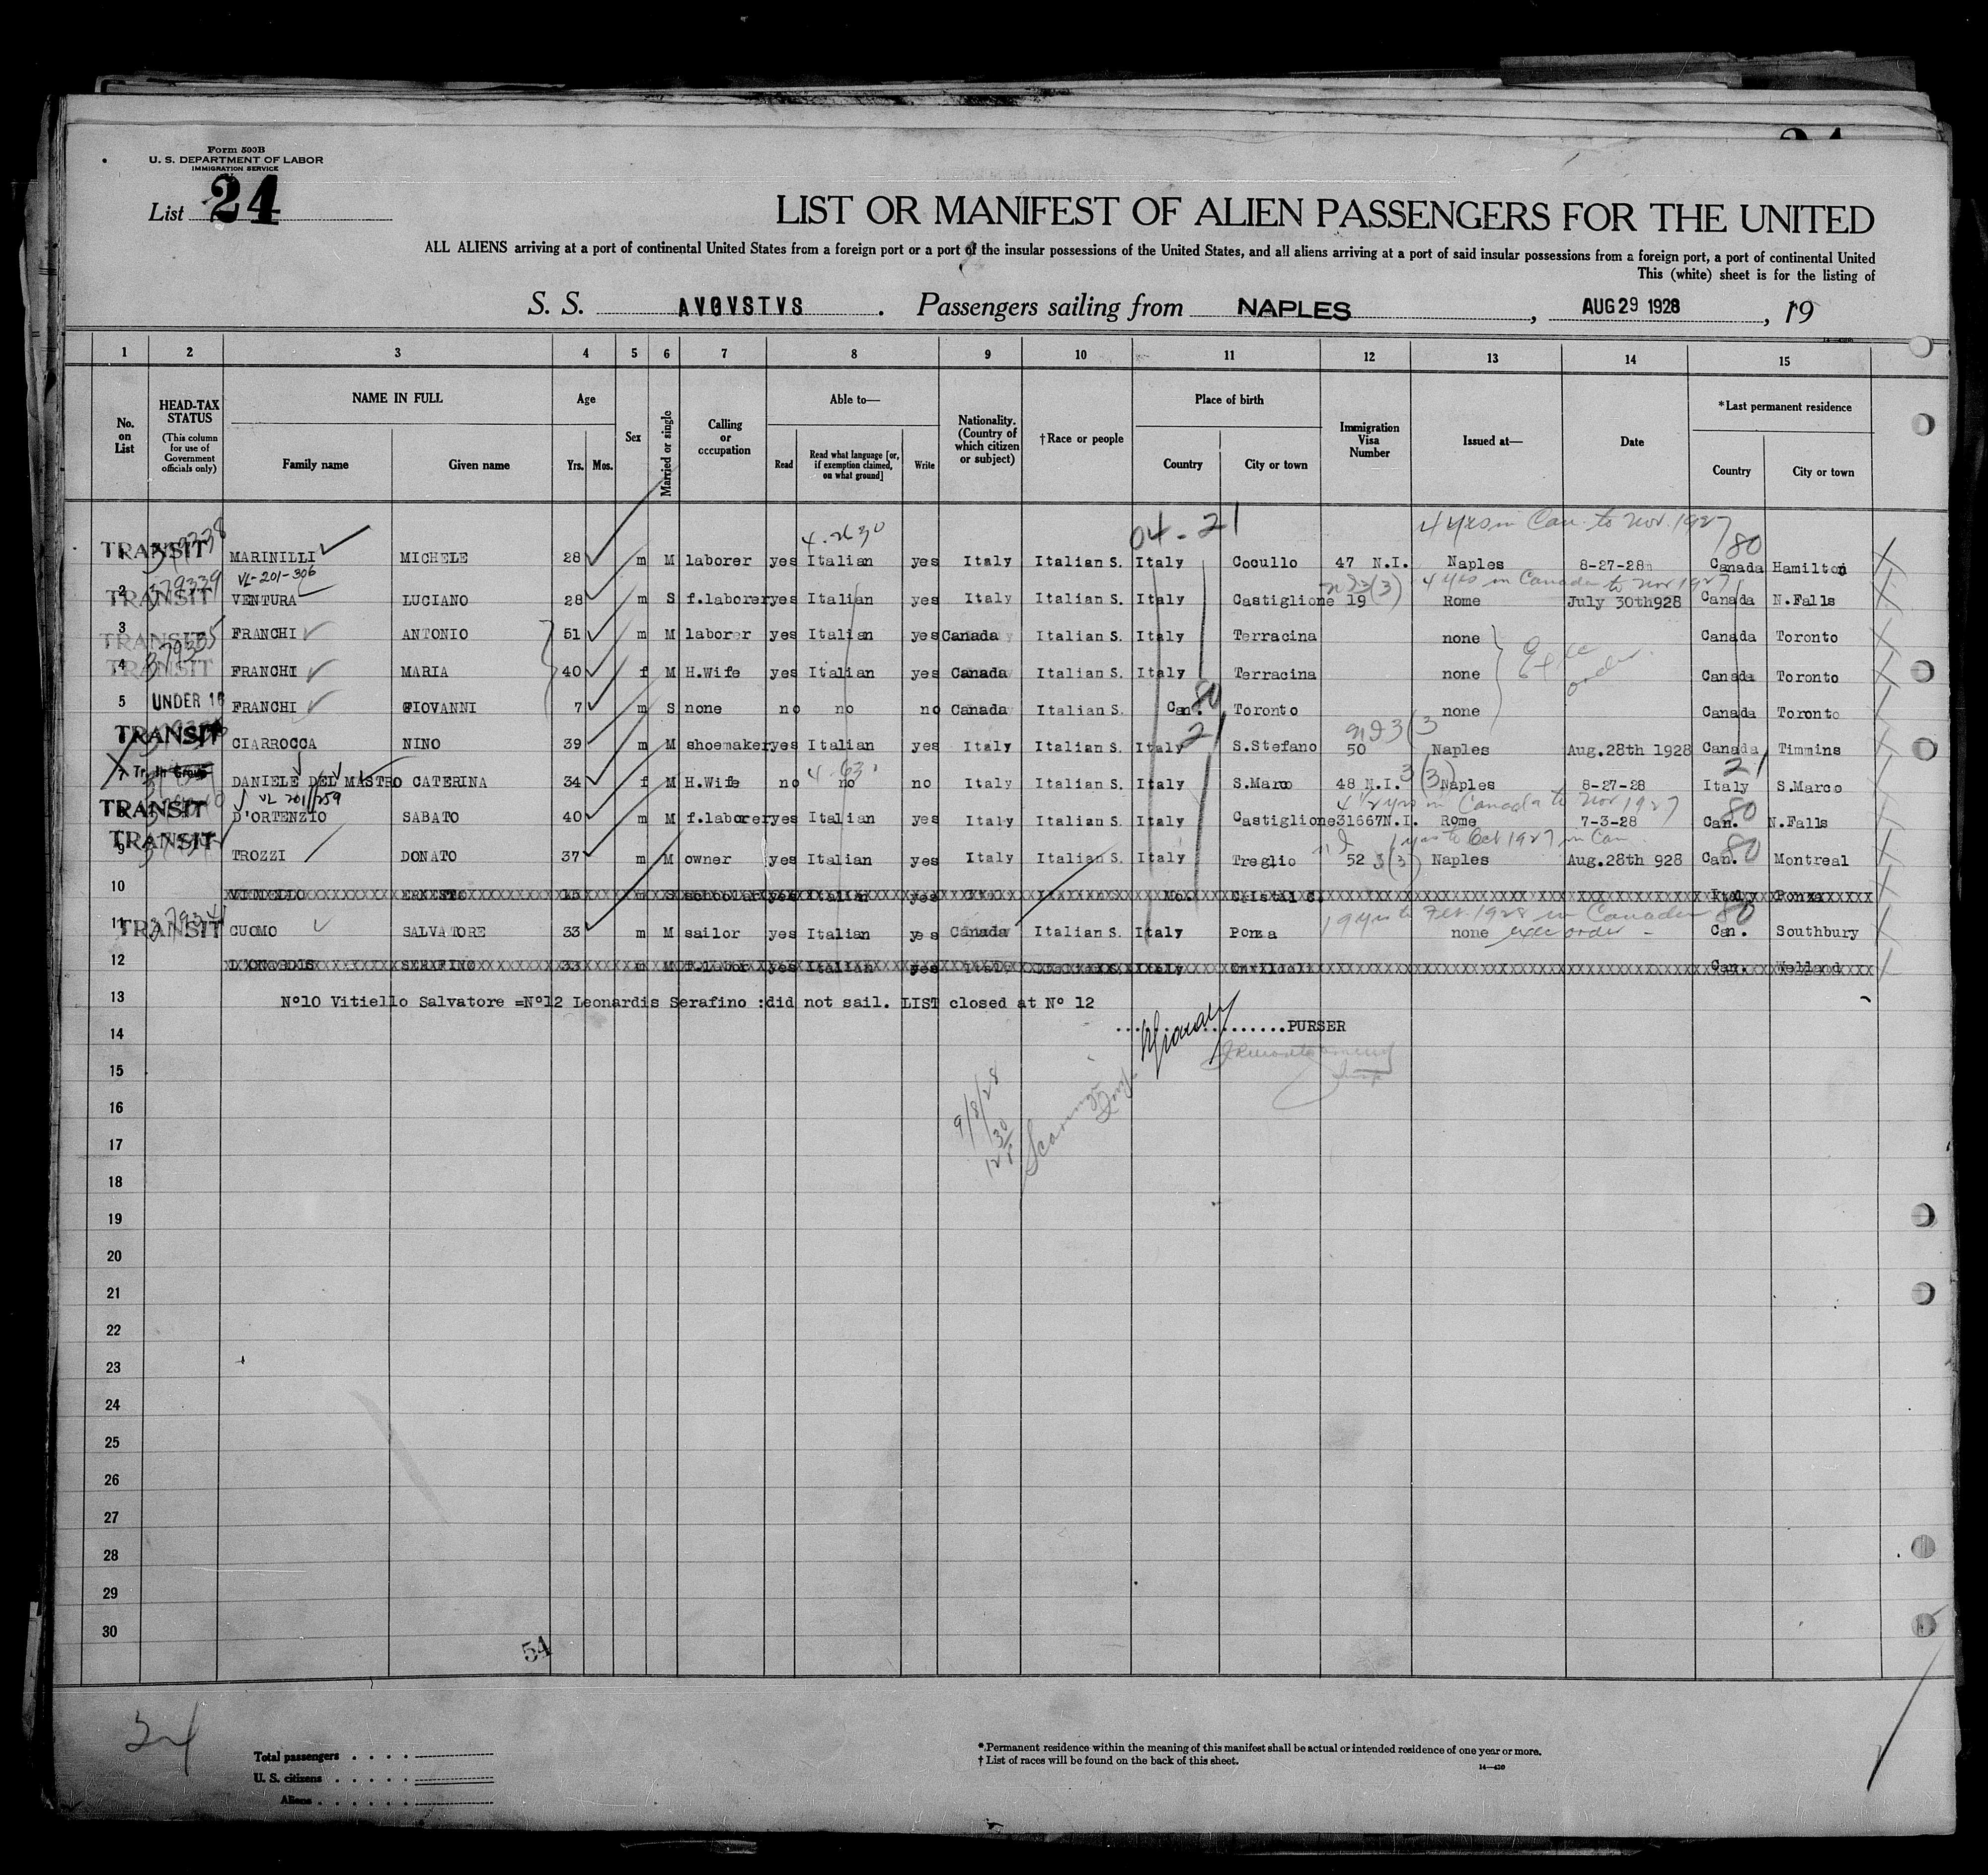 24
Form 500B
U. S. DEPARTMENT OF LABOR
IMMIGRATION SERVICE
List 24
LIST OR MANIFEST OF ALIEN PASSENGERS FOR THE UNITED
ALL ALIENS arriving at a port of continental United States from a foreign port or a port of the insular possessions of the United States, and all aliens arriving at a port of said insular possessions from a foreign port, a port of continental United
This (white) sheet is for the listing of
S. S. AVGVSTVS . Passengers sailing from NAPLES , AUG 29 1928 , 19
1 2 3 4 5 6 7 8 9 10 11 12 13 14 15
No. on List
HEAD-TAX STATUS (This column for use of Government officials only)
NAME IN FULL
Family name Given name
Age
Yrs. Mos.
Sex
Married or single
Calling or occupation
Able to—
Read
Read what language [or, if exemption claimed, on what ground]
Write
Nationality. (Country of which citizen or subject)
†Race or people
Place of birth
Country City or town
Immigration Visa Number
Issued at—
Date
*Last permanent residence
Country City or town
4 yrs in Can. to Nov. 1927
04-21
80
TRANSIT MARINILLI MICHELE 28 m M laborer yes Italian yes Italy Italian S. Italy Cocullo 47 N.I. Naples 8-27-28 Canada Hamilton
379339 VL-201-306 4 yrs in Canada to Nov 1927
2 TRANSIT VENTURA LUCIANO 28 m S f.laborer yes Italian yes Italy Italian S. Italy Castiglione 19 Rome July 30th928 Canada N.Falls
3 TRANSIT FRANCHI ANTONIO 51 m M laborer yes Italian yes Canada Italian S. Italy Terracina none Canada Toronto
4 TRANSIT FRANCHI MARIA 40 f M H.Wife yes Italian yes Canada Italian S. Italy Terracina none Canada Toronto
5 UNDER 16 FRANCHI GIOVANNI 7 m S none no no no Canada Italian S. Can. 80 Toronto none Canada Toronto
TRANSIT CIARROCCA NINO 39 m M shoemaker yes Italian yes Italy Italian S. Italy 21 S.Stefano 50 Naples Aug.28th 1928 Canada Timmins
7 DANIELE DEL MASTRO CATERINA 34 f M H.Wife no no no Italy Italian S. Italy S.Marco 48 N.I. Naples 8-27-28 Italy 21 S.Marco
VL 201/259 4 1/2 yrs in Canada to Nov 1927
TRANSIT D'ORTENZIO SABATO 40 m M f.laborer yes Italian yes Italy Italian S. Italy Castiglione 31667N.I. Rome 7-3-28 Can. 80 N.Falls
9 TRANSIT TROZZI DONATO 37 m M owner yes Italian yes Italy Italian S. Italy Treglio 52 Naples Aug.28th 928 Can. 80 Montreal
10 VITIELLO ERNESTO 15 m S schoolar yes Italian yes Italy Italian S. Mo. Cristal C. Italy Ponza
19 yrs to Feb. 1928 in Canada 80
11 TRANSIT CUOMO SALVATORE 33 m M sailor yes Italian yes Canada Italian S. Italy Ponza none exec order - Can. Southbury
12 LEONARDIS SERAFINO 33 m M f.labor yes Italian yes Italy Italian S. Italy Can. Welland
13 N°10 Vitiello Salvatore =N°12 Leonardis Serafino :did not sail. LIST closed at N° 12
14 ..................PURSER
15
16
9/8/28
17
18
19
20
21
22
23
24
25
26
27
28
29
30
54
24
Total passengers . . . .
U. S. citizens . . . . .
Aliens . . . . . .
*Permanent residence within the meaning of this manifest shall be actual or intended residence of one year or more.
†List of races will be found on the back of this sheet.
14—430